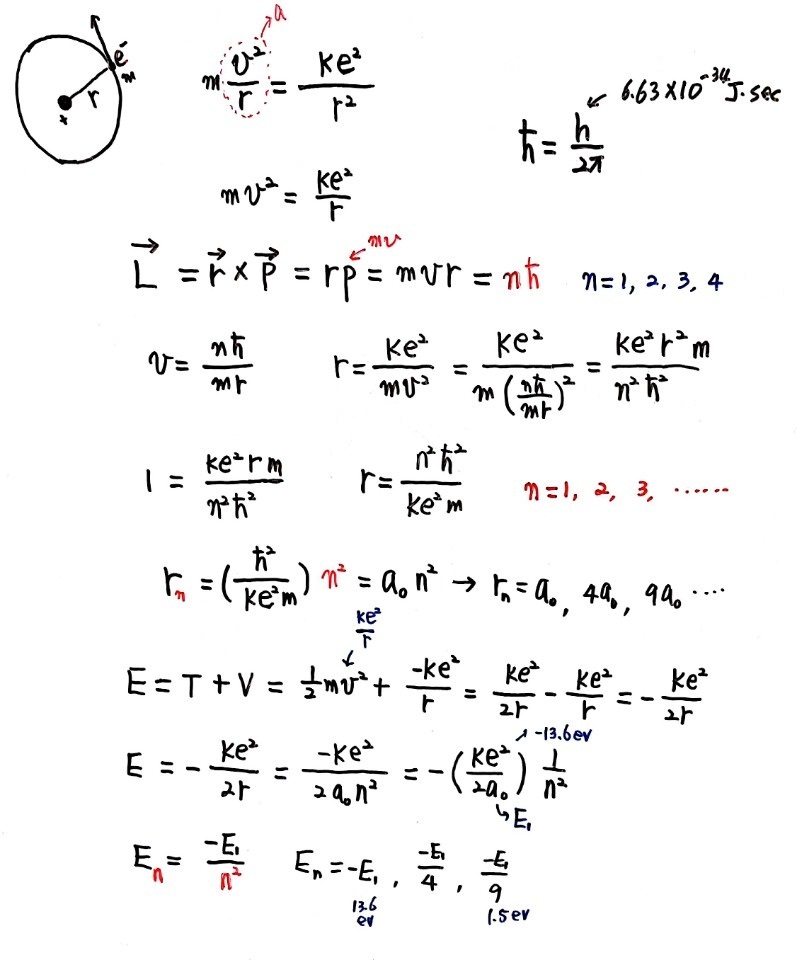 a
e⁻
m
r
+
m v²/r = ke²/r²
6.63×10⁻³⁴ J·sec
ħ = h/2π
mv² = ke²/r
mv
L⃗ = r⃗ × P⃗ = rp = mvr = nħ n=1, 2, 3, 4
v = nħ/mr r = ke²/mv² = ke²/m(nħ/mr)² = ke²r²m/n²ħ²
1 = ke²rm/n²ħ² r = n²ħ²/ke²m n=1, 2, 3, ......
rₙ = (ħ²/ke²m) n² = a₀n² → rₙ = a₀, 4a₀, 9a₀ ....
ke²/r
E = T + V = ½mv² + -ke²/r = ke²/2r - ke²/r = -ke²/2r
-13.6ev
E = -ke²/2r = -ke²/2a₀n² = -(ke²/2a₀) 1/n²
E₁
Eₙ = -E₁/n² Eₙ = -E₁, -E₁/4, -E₁/9
13.6 ev 1.5ev